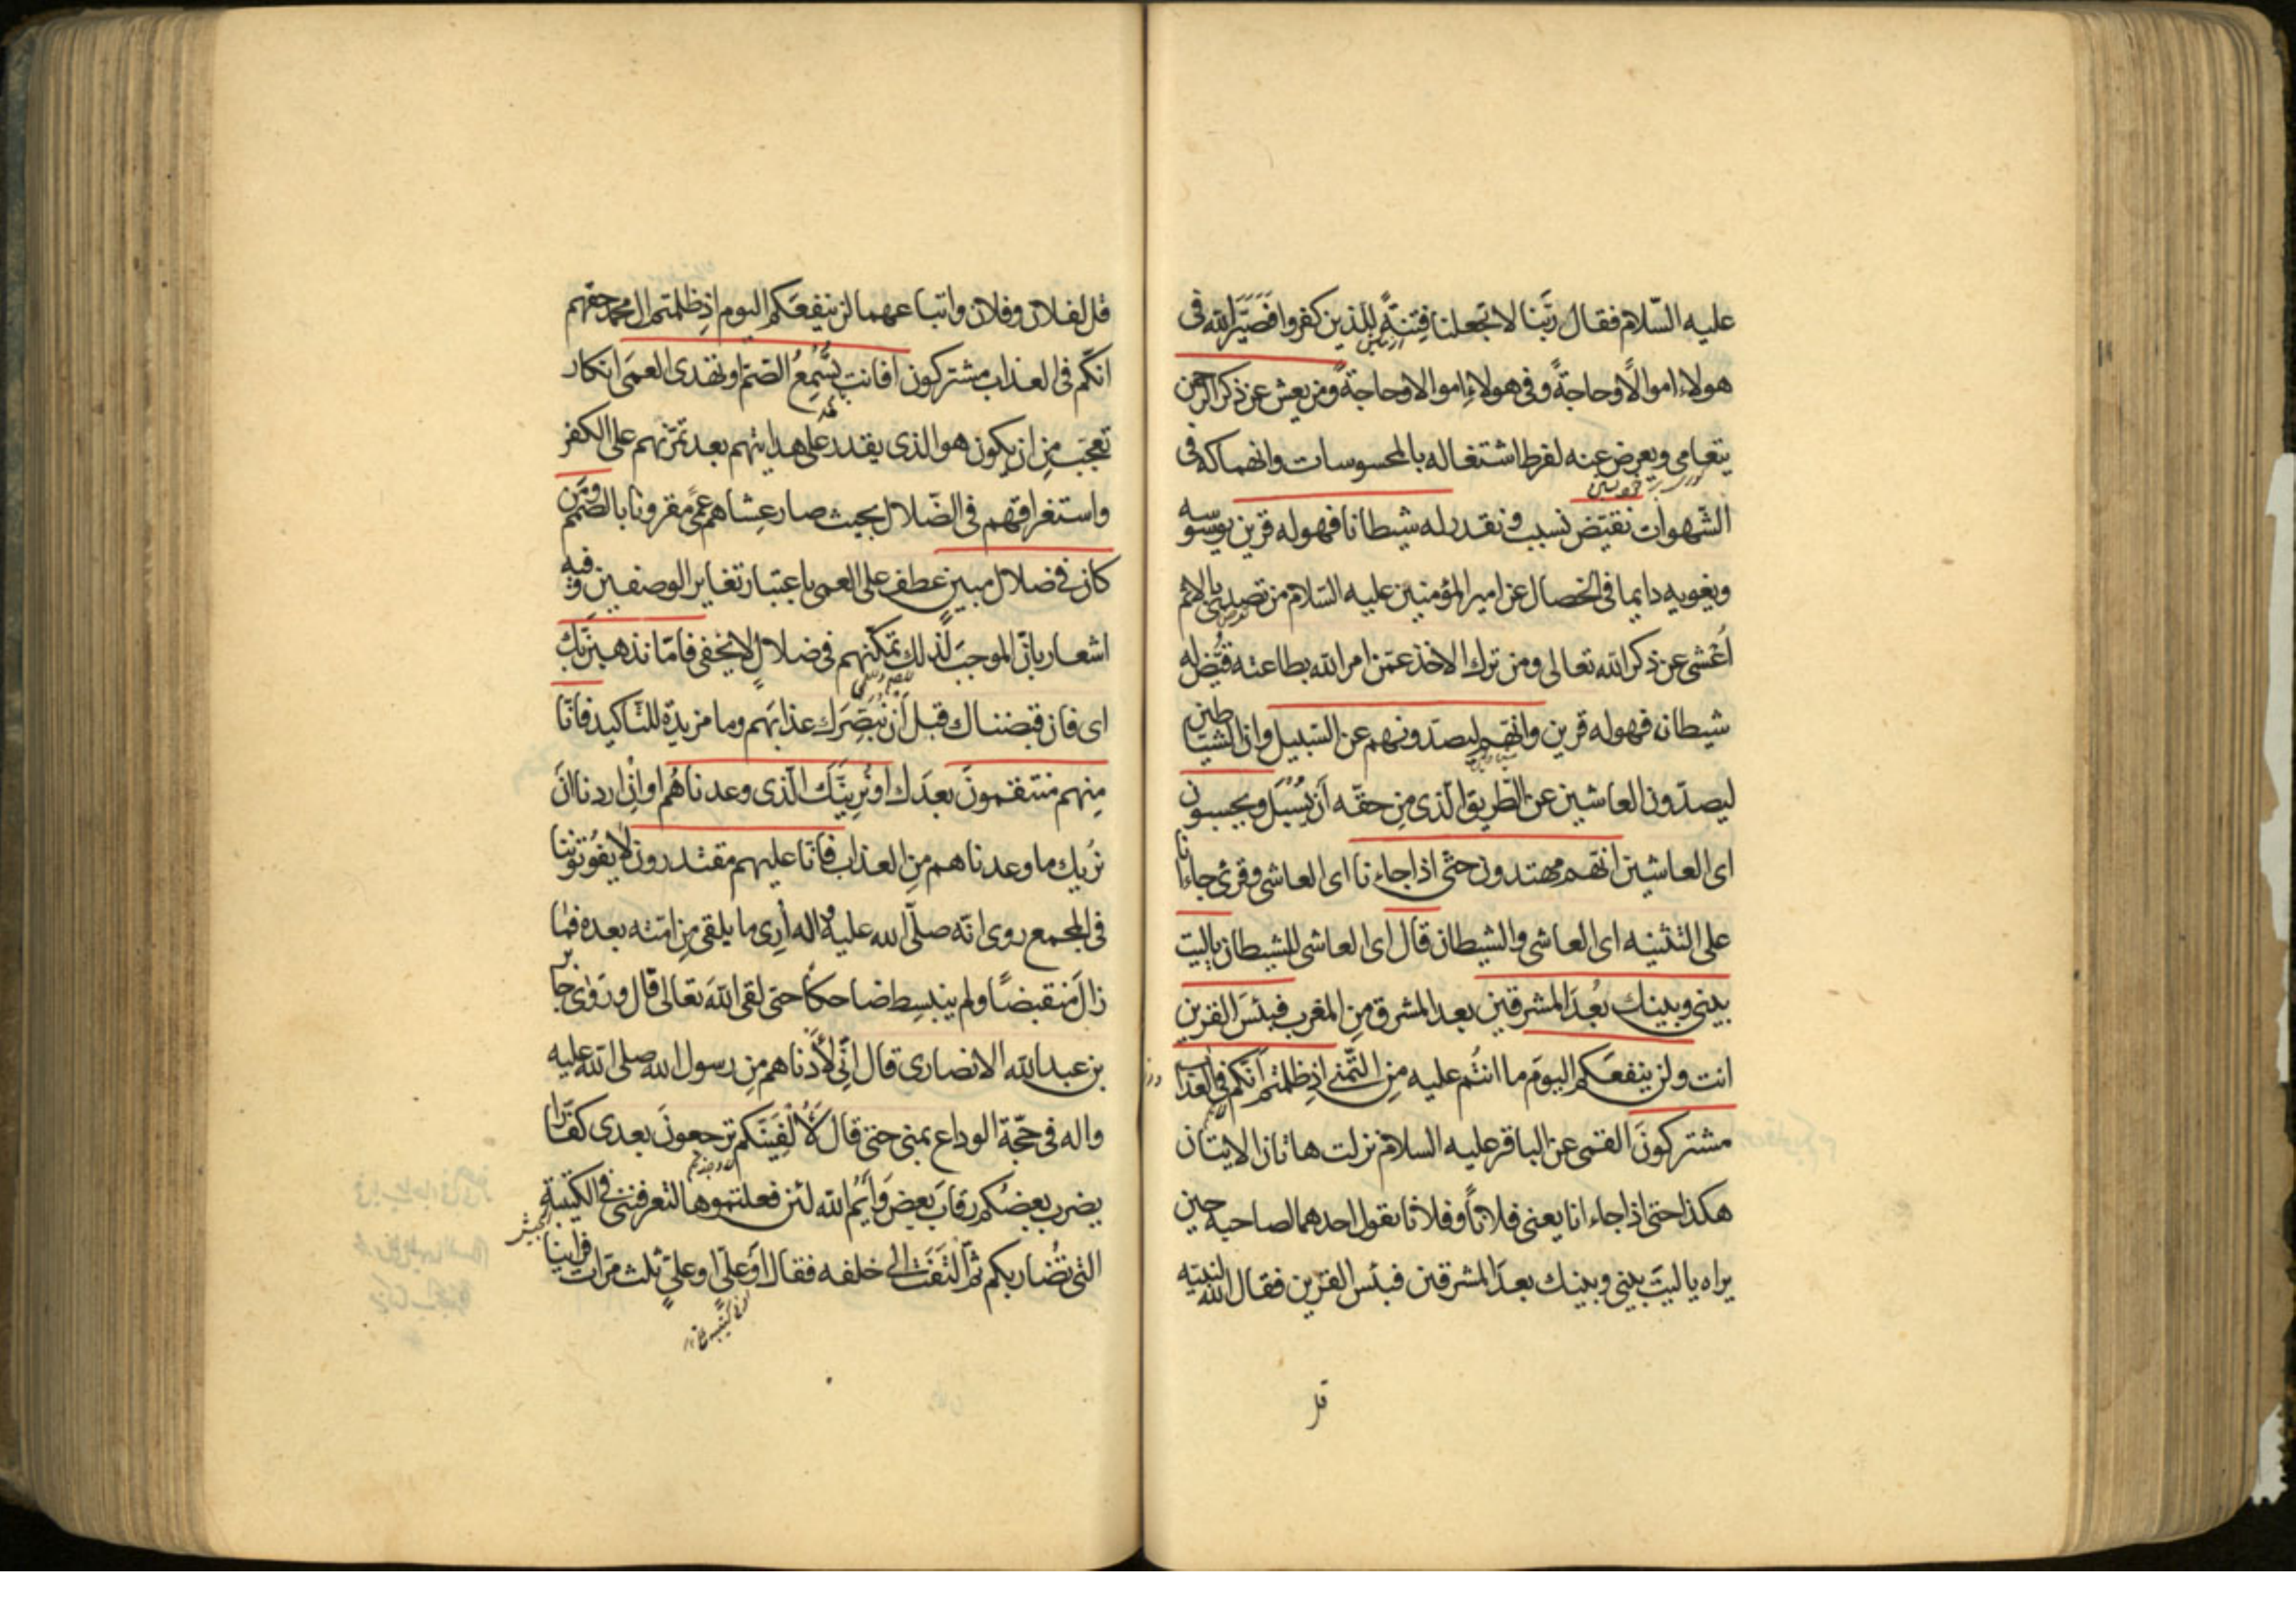 عليه السّلام فقال ربّنا لا تجعلنا فِتنةً للذين كفروا فصَيَّر الله فى
هولاء اموالًا وحاجةً وفى هولاءِ اموالا وحاجةً ومن يعش عن ذكر الرحمن
يتعامى ويعرض عنه لفرط اشتغاله بالمحسوسات وانهماكه فى
الشهوات نقيّض نسبب ونقدر له شيطانا فهو له قرين يوسوسه
ويغويه دايما فى الخصال عن امير المؤمنين عليه السّلام من تصدى بالاثم
اُعْشى عن ذكر الله تعالى ومن ترك الاخذ عمّن امر الله بطاعته قُيّض له
شيطان فهو له قرين وانّهم ليصدّونهم عن السّبيل وان الشياطين
ليصدّون العاشين عن الطّريق الّذى مِن حقّه اَن يُسْبَل ويحسبون
اى العاشين انّهم مهتدون حتّى اذا جاءنا اى العاشى وقرئ جاءانا
على التثنيه اى العاشى والشيطان قال اى العاشى للشيطان ياليت
بينى وبينك بُعدَ المشرقين بعد المشرق مِن المغرب فبئسَ القرين
انت ولن ينفعَكم اليومَ ما انتُم عليه مِن التّمنى اذ ظلمتم انّكم فى العذاب
مشتركونَ القمى عن الباقر عليه السلام نزلت هاتان الايتان
هكذا حتى اذا جاءانا يعنى فلاناً وفلانا يقول احدهما لصاحبه حين
يراه ياليتَ بينى وبينك بعدَ المشرقين فبئس القرين فقال الله لنبيّه
قل
قل لفلان وفلان واتباعهما لن ينفعَكم اليوم اذ ظلمتم ال محمد حقهم
انّكم فى العذاب مشتركون افانت تُسْمِعُ الصّمّ او تهدى العمىَ انكار
تعجّب مِن ان يكون هو الذى يقدر على هدايتهم بعد تمرّنهم على الكفر
واستغراقهم فى الضّلال بحيث صار عِشاهم عمىً مقرونا بالصّمم ومَن
كان فى ضلال مبين عطف على العمى باعتبار تغاير الوصفين وفيه
اشعار بانّ الموجبَ لذلك تمكّنهم فى ضلالٍ لا يخفى فامّا نذهبنّ بك
اى فان قبضناك قبل اَن نُبَصّرَك عذابَهم وما مزيدة للتاكيد فانّا
مِنهم منتقمونَ بعدَك او نُريَنّك الّذى وعدناهُم او اِنْ اردنا اَن
نريك ما وعدناهم مِن العذاب فانّا عليهم مقتدرون لا يفوُتوننا
فى المجمع روى انّه صلّى الله عليه واله اُرِى ما يلقى مِن امّته بعده فما
زالَ منقبضًا ولم ينبسِط ضاحكًا حتى لقى اللهَ تعالى قال وروى جابر
بن عبد الله الانصارى قال اِنّى لأدناهم مِن رسول الله صلى الله عليه
واله فى حجّة الوداع بمنى حتى قال لاُلْفِيَنّكم ترجعونَ بعدى كفّارا
يضرب بعضُكم رقابَ بعض وَاَيْمُ الله لئن فعلتموها لتعرفننى فى الكتيبة
الجيش
التى تُضاربكم ثمّ التَفَتَ الى خلفه فقال اوْ علىّ او علىّ ثلث مرّات فراينا